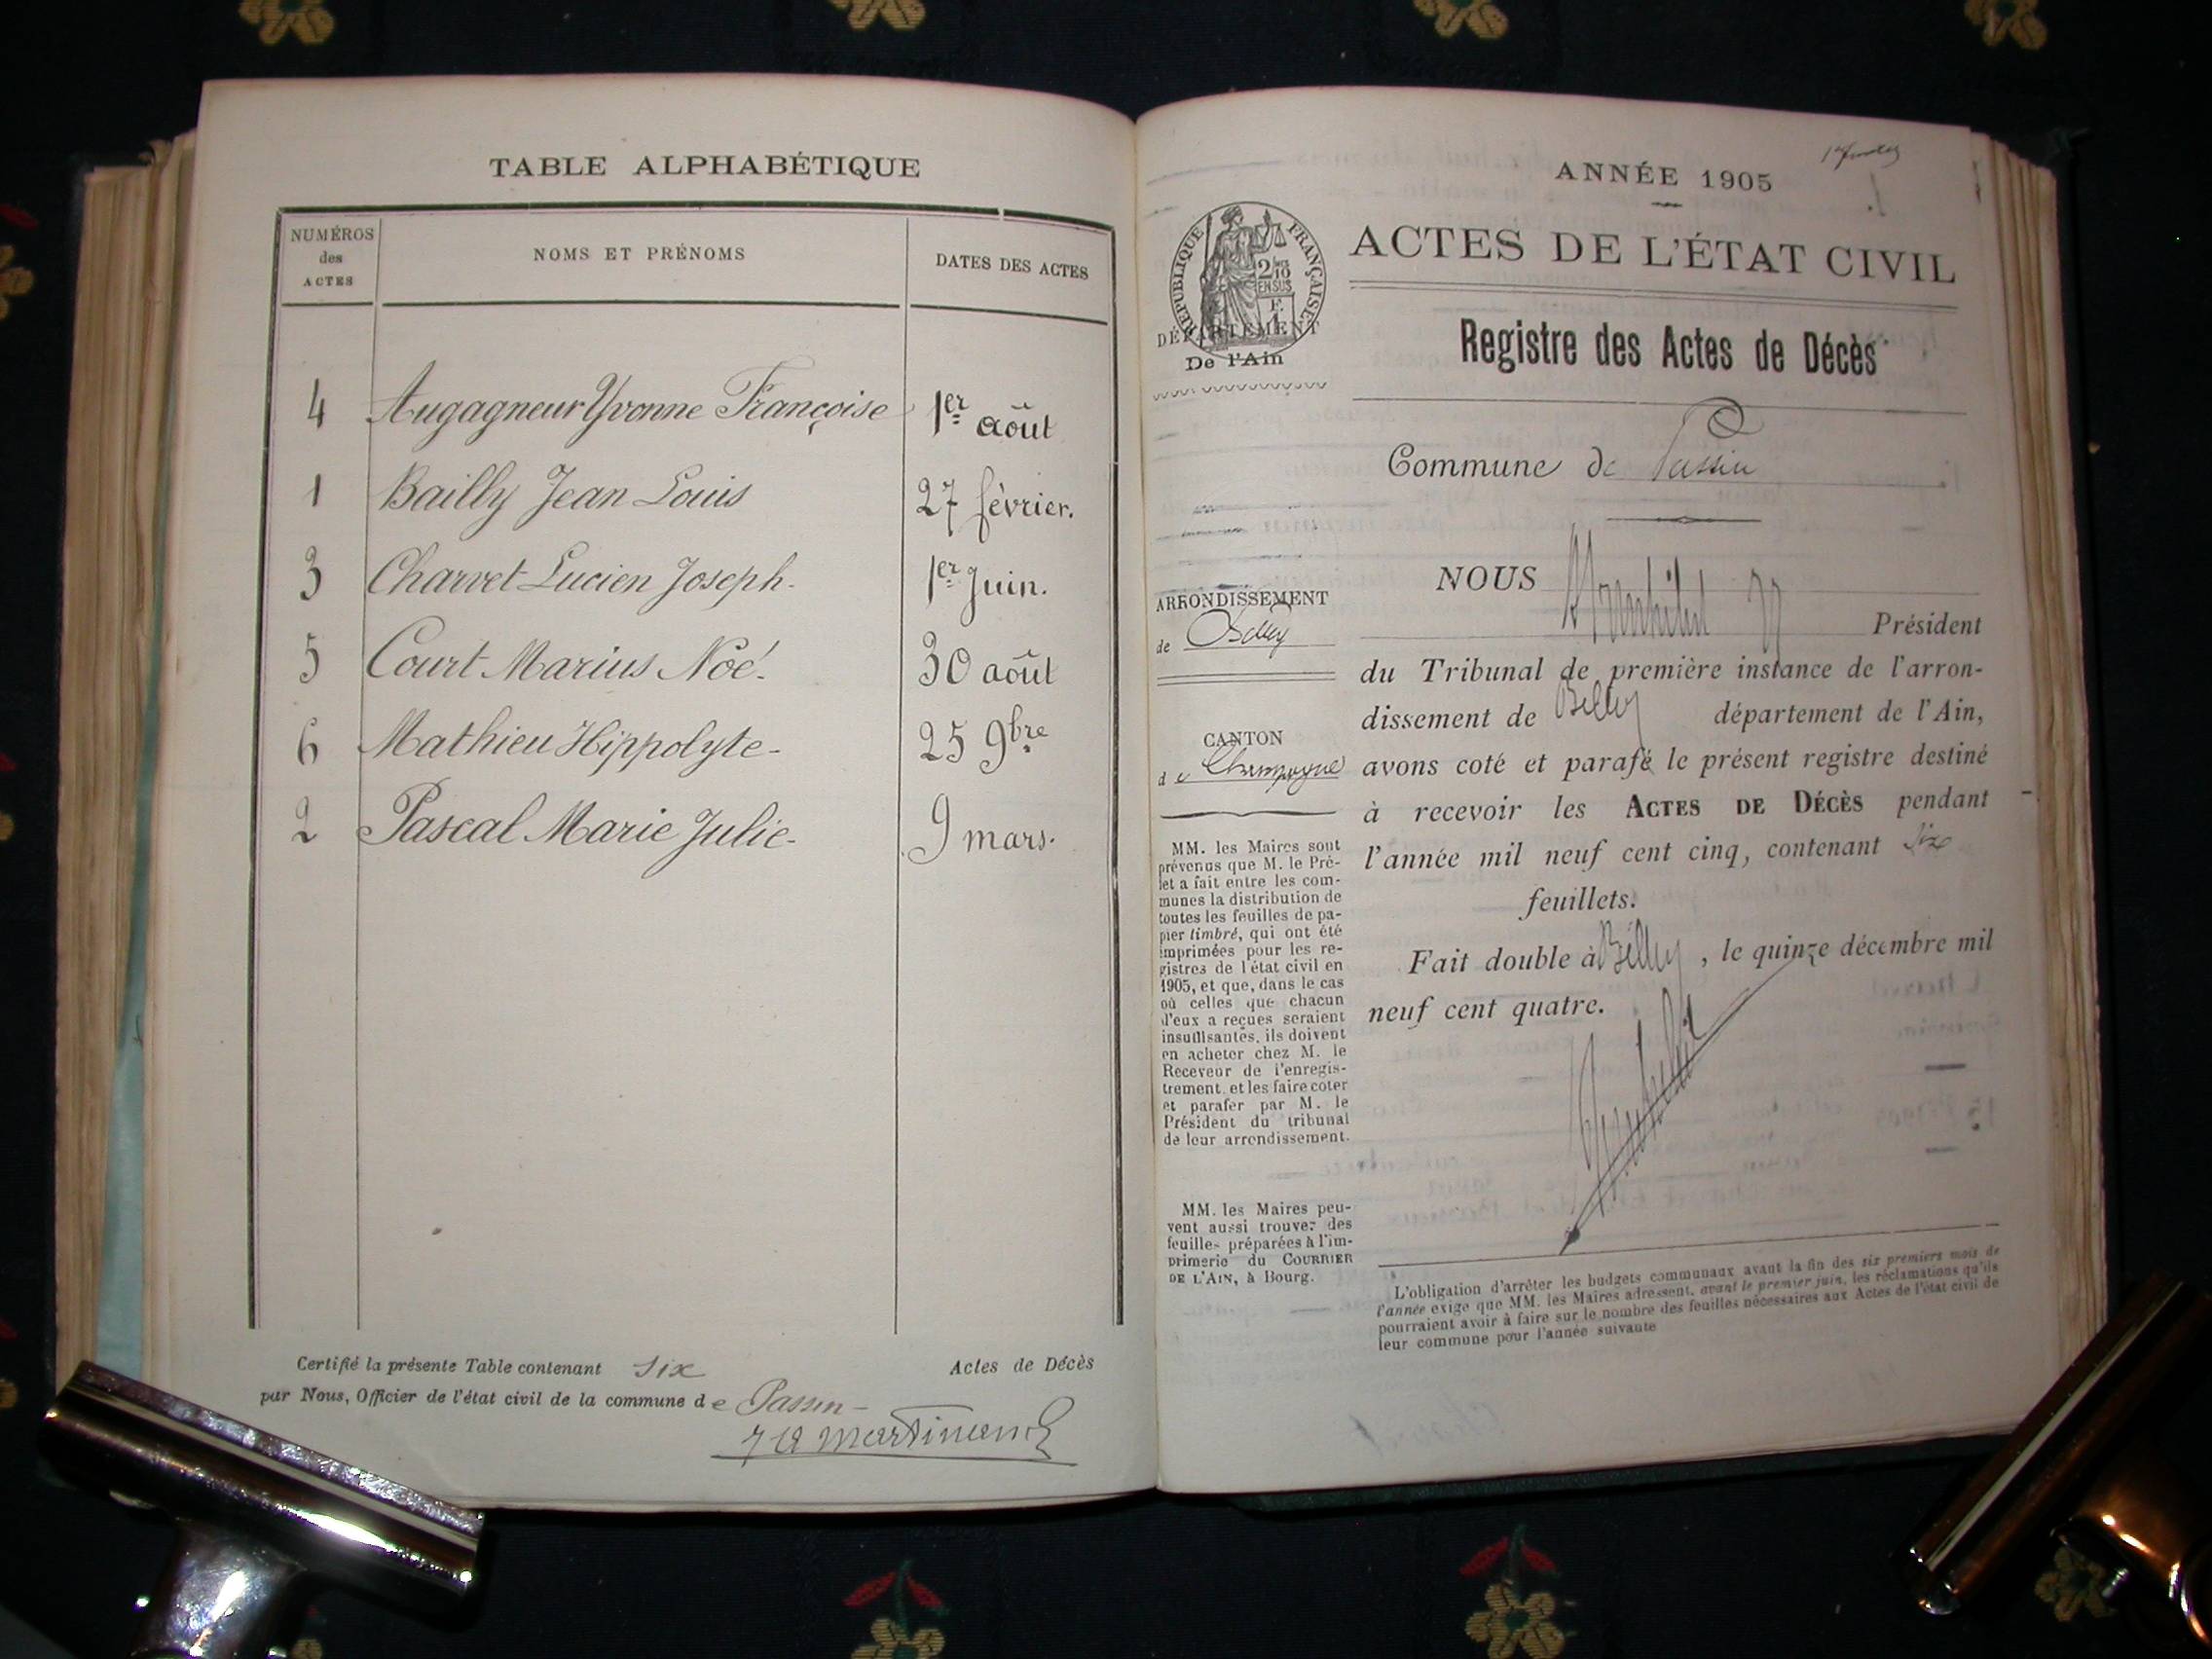 TABLE ALPHABÉTIQUE
NUMÉROS
des
ACTES
NOMS ET PRÉNOMS
DATES DES ACTES
4 Augagneur Yvonne Françoise 1er août
1 Bailly Jean Louis 27 février.
3 Charvet Lucien Joseph. 1er Juin.
5 Court Marius Noé. 30 août
6 Mathieu Hippolyte 25 9bre
2 Pascal Marie Julie 9 mars.
Certifié la présente Table contenant six Actes de Décès
par Nous, Officier de l'état civil de la commune de Passin
Martinand
ANNÉE 1905
RÉPUBLIQUE FRANÇAISE
2/10
EN SUS
F.
1
DÉPARTEMENT
De l'Ain
ACTES DE L'ÉTAT CIVIL
Registre des Actes de Décès
Commune de Passin
ARRONDISSEMENT
de Belley
CANTON
de Champagne
MM. les Maires sont
prévenus que M. le Pré-
fet a fait entre les com-
munes la distribution de
toutes les feuilles de pa-
pier timbré, qui ont été
imprimées pour les re-
gistres de l'état civil en
1905, et que, dans le cas
où celles que chacun
d'eux a reçues seraient
insuffisantes, ils doivent
en acheter chez M. le
Receveur de l'enregis-
trement, et les faire coter
et parafer par M. le
Président du tribunal
de leur arrondissement.
MM. les Maires peu-
vent aussi trouver des
feuilles préparées à l'im-
primerie du COURRIER
DE L'AIN, à Bourg.
NOUS
Président
du Tribunal de première instance de l'arron-
dissement de Belley département de l'Ain,
avons coté et parafé le présent registre destiné
à recevoir les ACTES DE DÉCÈS pendant
l'année mil neuf cent cinq, contenant six
feuillets.
Fait double à Belley, le quinze décembre mil
neuf cent quatre.
L'obligation d'arrêter les budgets communaux avant la fin des six premiers mois de
l'année exige que MM. les Maires adressent, avant le premier juin, les réclamations qu'ils
pourraient avoir à faire sur le nombre des feuilles nécessaires aux Actes de l'état civil de
leur commune pour l'année suivante